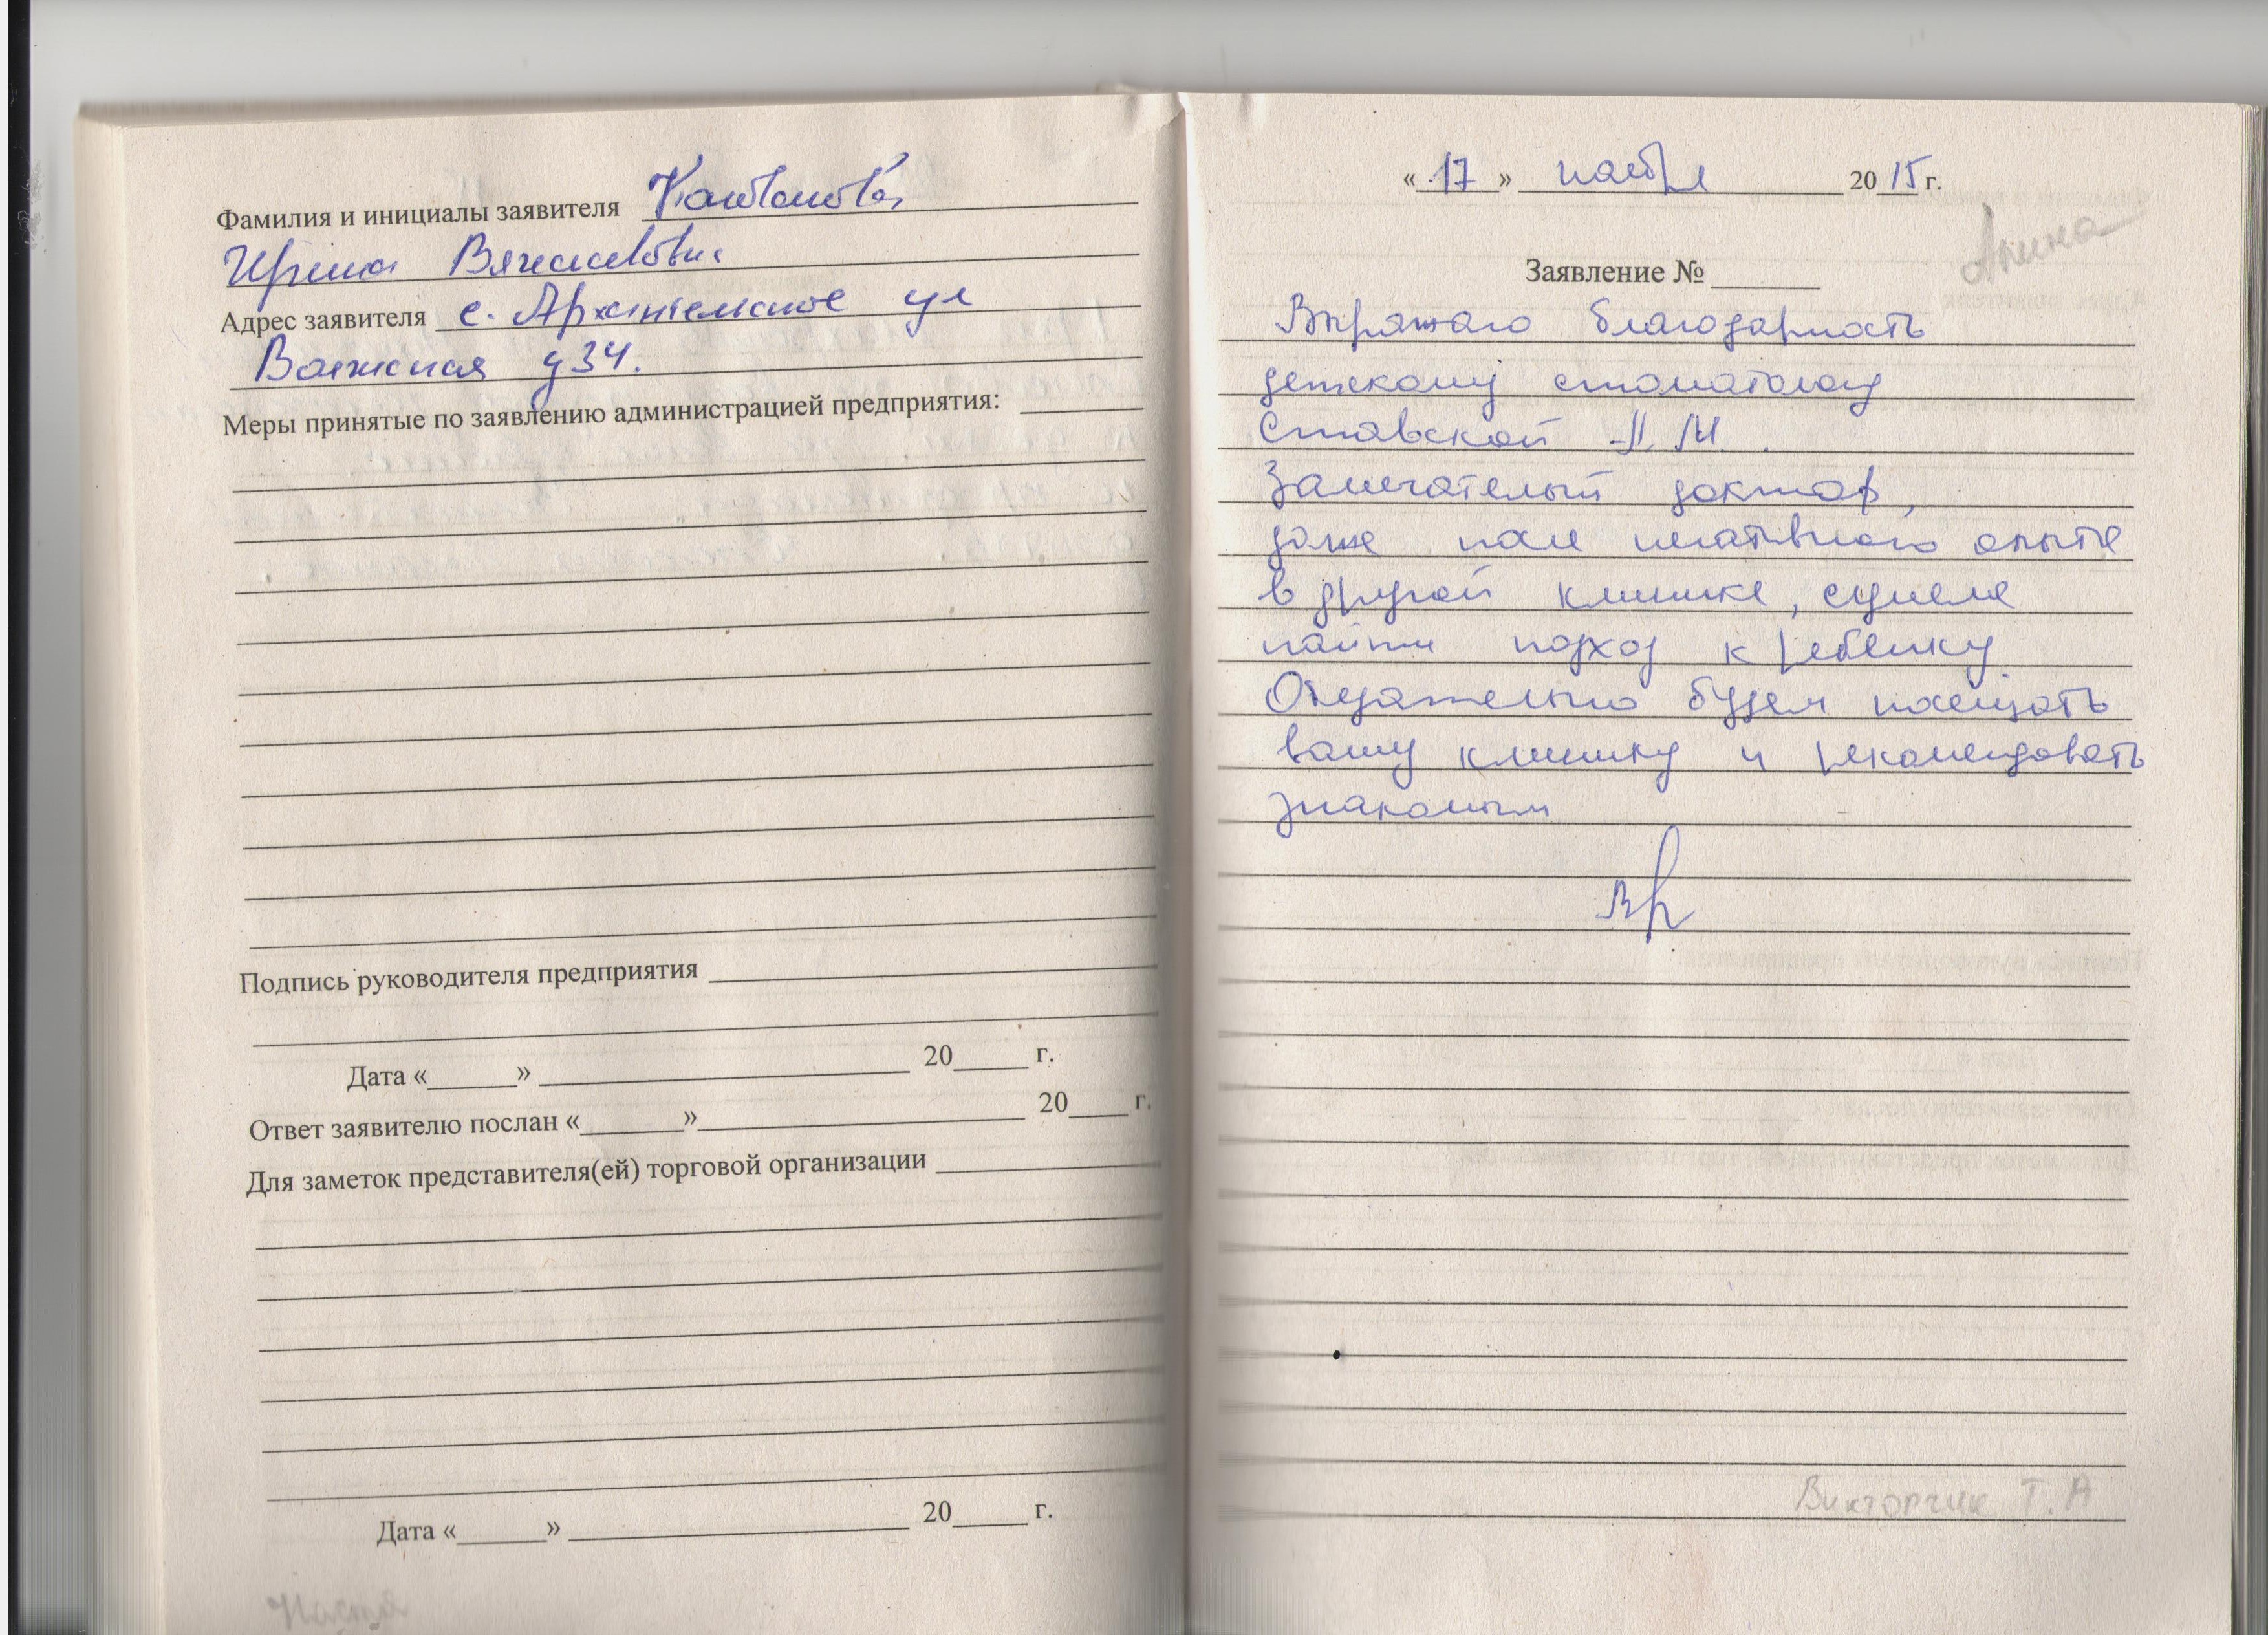 Фамилия и инициалы заявителя
Ирина
Адрес заявителя с. Архангельское ул
Волжская д 34.
Меры принятые по заявлению администрацией предприятия:
Подпись руководителя предприятия
Дата « » 20 г.
Ответ заявителю послан « » 20 г.
Для заметок представителя(ей) торговой организации
Дата « » 20 г.
Настя
« 17 » ноября 20 15 г.
Арина
Заявление №
Выражаю благодарность
детскому стоматологу
Ставской Л. М.
Замечательный доктор,
даже после негативного опыта
в другой клинике, сумела
найти подход к ребенку
Обязательно будем посещать
вашу клинику и рекомендовать
знакомым
Викторчик Т. А